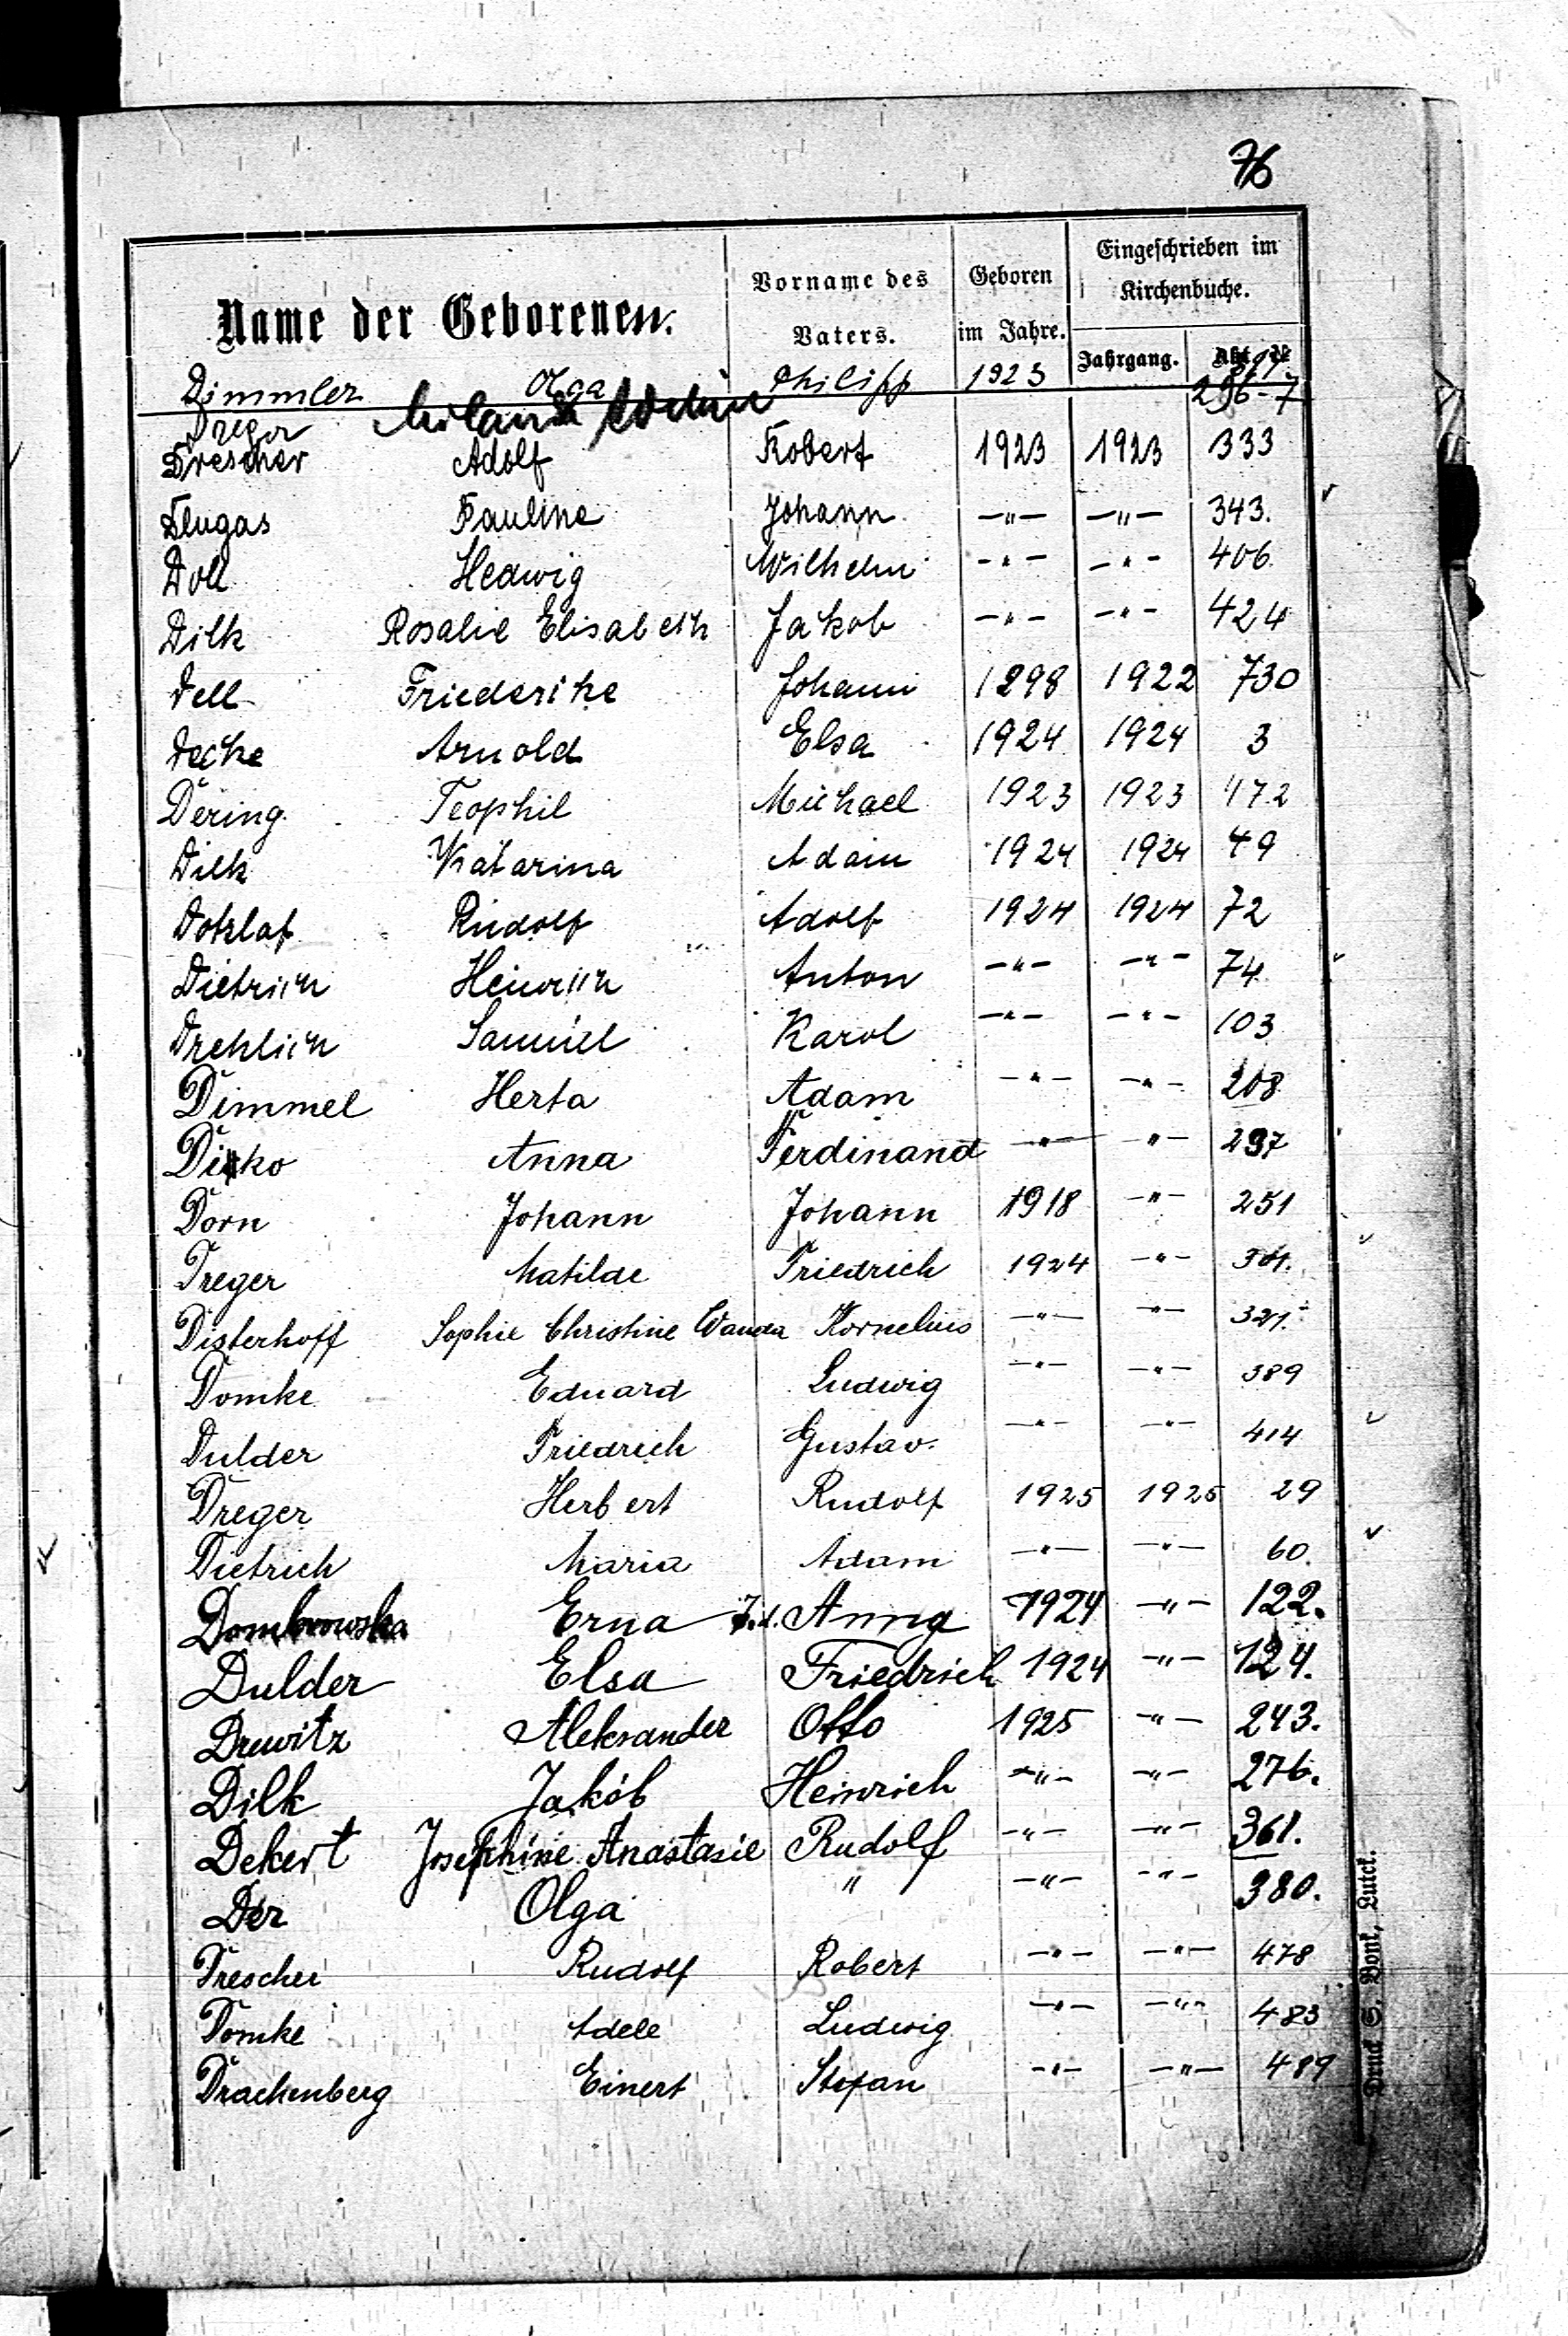 76
Name der Geborenen. Vorname des Vaters. Geboren im Jahre. Eingeschrieben im Kirchenbuche.
Jahrgang. Akt №
Dimmler Olga Philipp 1923
Dreger 296-7
Drescher Adolf Robert 1923 1923 333
Dlugas Pauline Johann —"— —"— 343.
Doll Hedwig Wilhelm —"— —"— 406.
Dilk Rosalie Elisabeth Jakob —"— —"— 424
Dell Friederike Johann 1898 1922 730
Decke Arnold Elsa 1924 1924 3
Dering Teophil Michael 1923 1923 172
Dilk Katarina Adam 1924 1924 49
Dotzlaf Rudolf Adolf 1924 1924 72
Dietrich Heinrich Anton —"— —"— 74
Drehlich Samuel Karol —"— —"— 103
Dimmel Herta Adam —"— —"— 208
Anna Ferdinand —"— —"— 237
Dorn Johann Johann 1918 —"— 251
Dreger Matilde Friedrich 1924 —"— 301.
Disterhoff Sophie Christine Wanda Kornelius —"— —"— 321.
Domke Eduard Ludwig —"— —"— 389
Dulder Friedrich Gustav. —"— —"— 414
Dreger Herbert Rudolf 1925 1925 29
Dietrich Maria Adam —"— —"— 60.
Dombrowska Erna Anna 1924 —"— 122.
Dulder Elsa Friedrich 1924 —"— 124.
Drewitz Aleksander Otto 1925 —"— 243.
Dilk Jakób Heinrich —"— —"— 276.
Dekert Josephine Anastasie Rudolf —"— —"— 361.
Der Olga " —"— —"— 380.
Drescher Rudolf Robert —"— —"— 478
Domke Adele Ludwig —"— —"— 483
Drachenberg Einert Stefan —"— —"— 489
Druck S. Bonk, Lutck.